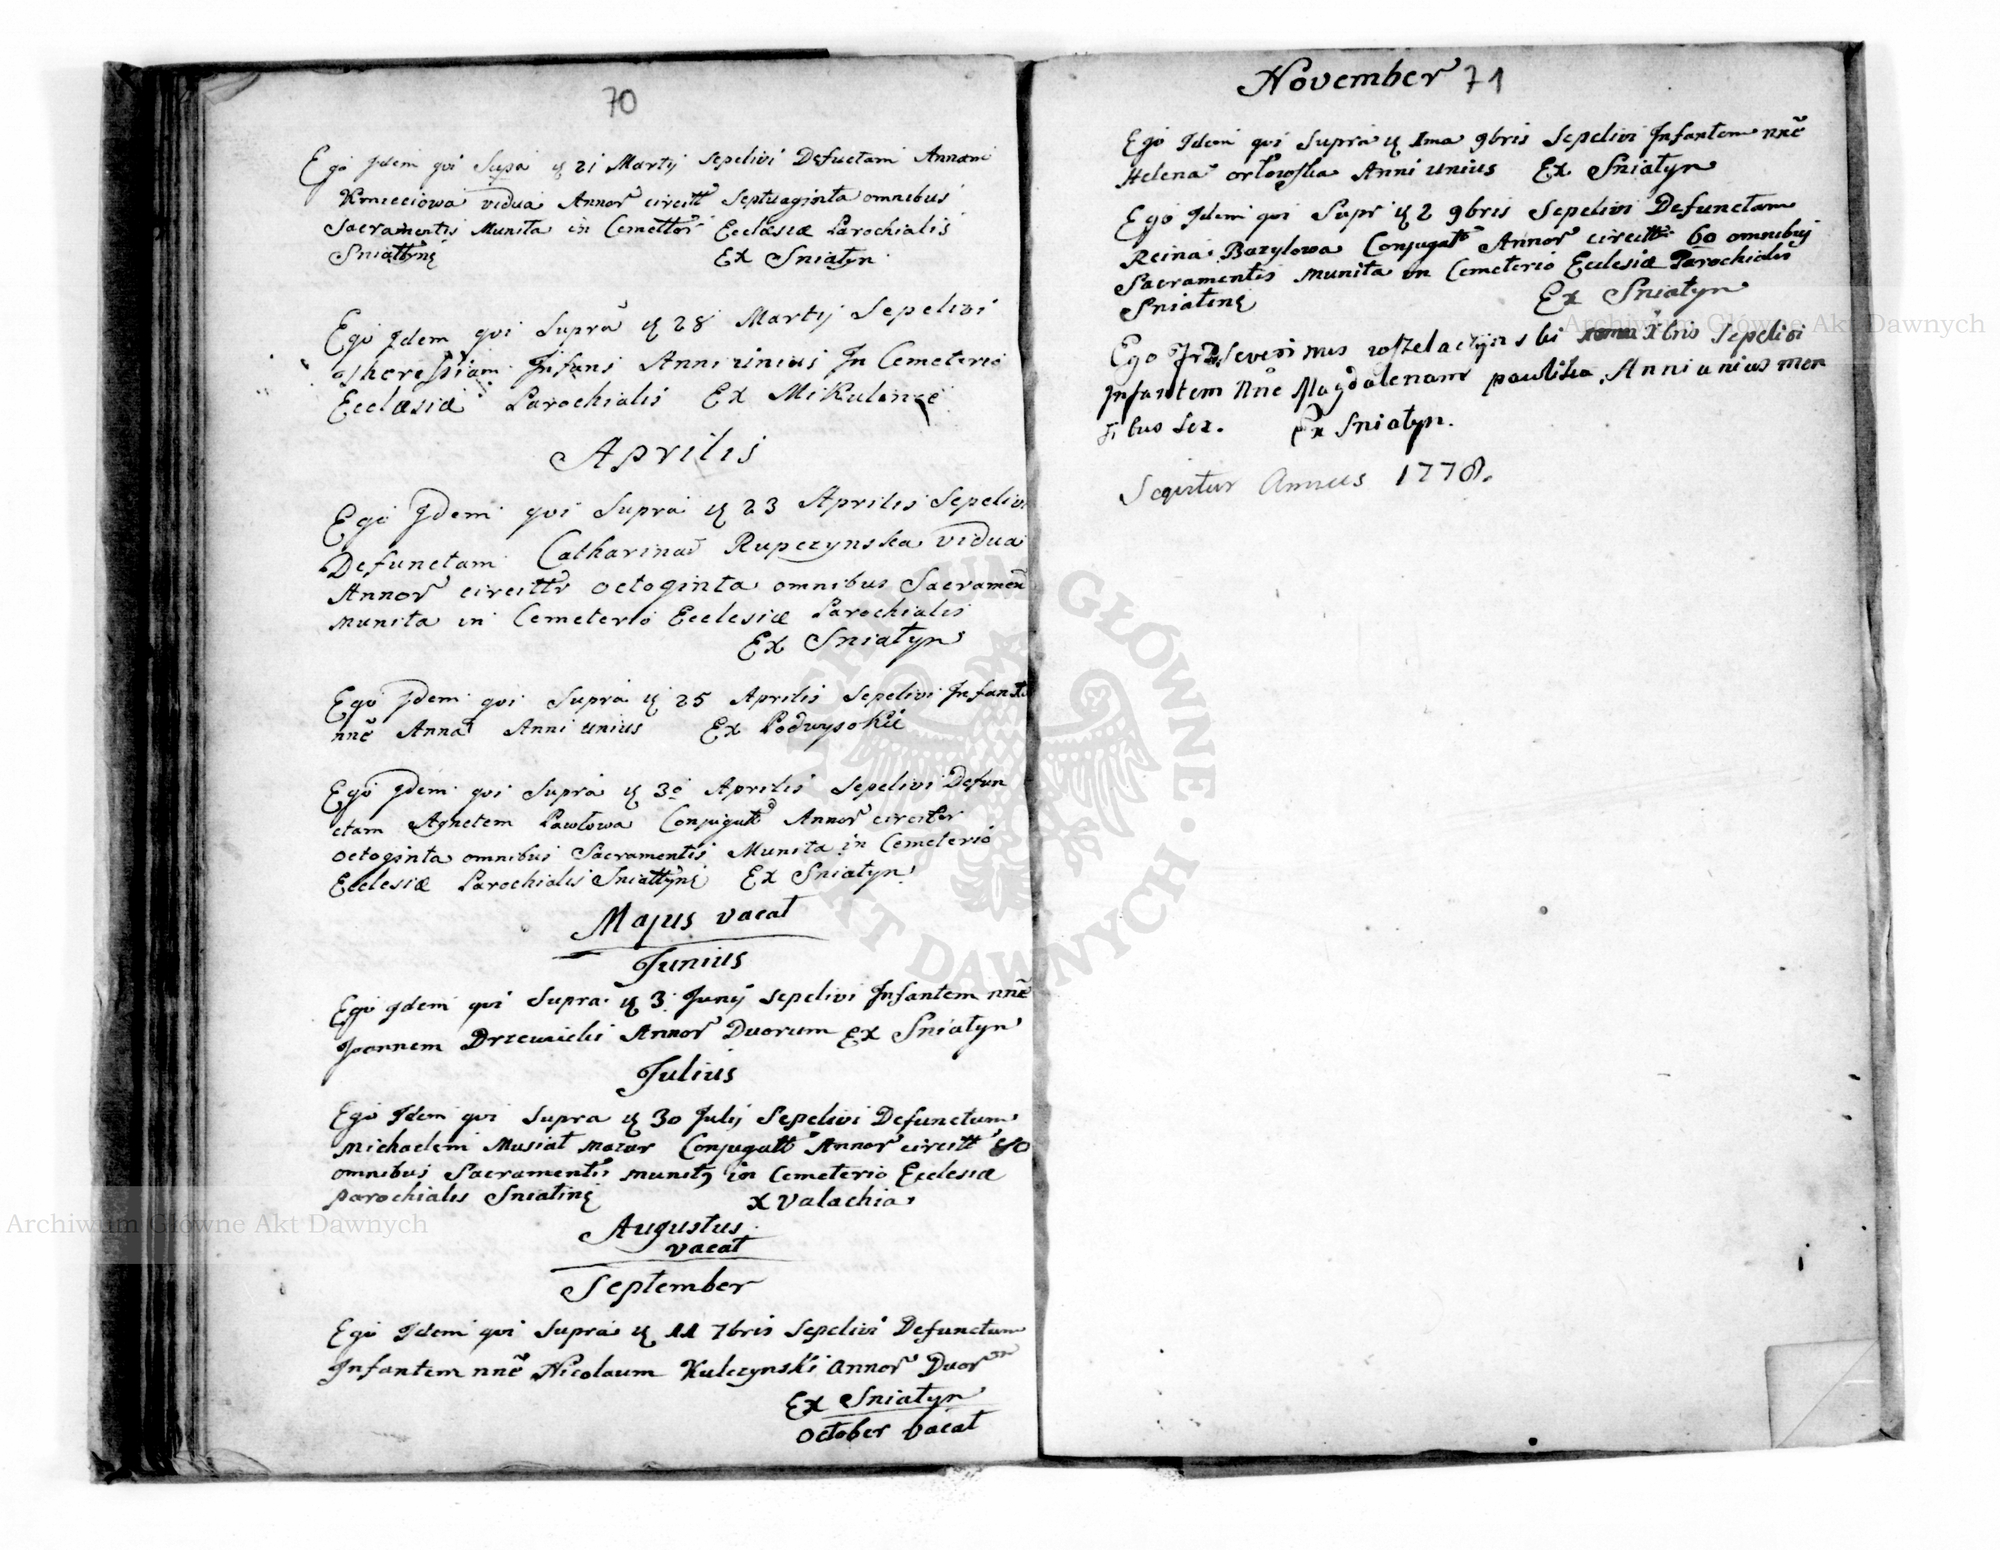 70
Ego Idem qui Supa 21 Martij Sepelivi Defuctam Annam
Kmieciowa vidua Annor circitt Septuaginta omnibus
Sacramentis Munita in Cemetter Ecclæsiæ Parochialis
Sniattyne Ex Sniatyn
Ego Idem qui Supra 28 Martij Sepelivi
Theressiam Infans Anni unius In Cemeterio
Ecclæsiæ Parochialis Ex Mikulince
Aprilis
Ego Idem qui Supra 23 Aprilis Sepelivi
Defunctam Catharina Rupczynska vidua
Annor circitter octoginta omnibus Sacramen
munita in Cemeterio Ecclesiæ Parochialis
Ex Sniatyn
Ego Idem qui Supra 25 Aprilis Sepelivi Infant
nnē Anna Anni unius Ex Podwysokie
Ego Idem qui Supra 30 Aprilis Sepelivi Defun
ctam Agnetem Pawłowa Conjugatt Annor circiter
octoginta omnibus Sacramentis Munita in Cemeterio
Ecclesiæ Parochialis Sniattyne Ex Sniatyn
Majus vacat
Junius
Ego Idem qui Supra 3 Junij Sepelivi Infantem nnē
Joannem Drzewicki Annor Duorum Ex Sniatyn
Julius
Ego Idem qui Supra 30 Julij Sepelivi Defunctum
Michaelem Musiał mazur Conjugatt Annor circitt
omnibus Sacramentis munit in Cemeterio Ecclesiæ
parochialis Sniatine x Valachia
Augustus
vacat
September
Ego Idem qui Supra 11 7bris Sepelivi Defunctum
Infantem nnē Nicolaum Kulczynski Annor Duor
Ex Sniatyn
October vacat
November 71
Ego Idem qui Supra Ima 9bris Sepelivi Infantem nnē
Helena orłowska Anni unius Ex Sniatyn
Ego Idem qui Supr 2 9bris Sepelivi Defunctam
Reina Bazylowa Conjugatt Annor circitt 60 omnibus
Sacramentis munita in Cemeterio Ecclesiæ Parochialis
Sniatine Ex Sniatyn
Ego Severinus Xbris Sepelivi
Infantem Nnē Magdalenam pawlika Anni unius men
sibus Sex. Ex Sniatyn.
Seqvitur Annus 1778.
Archiwum Główne Akt Dawnych
Archiwum Główne Akt Dawnych
ARCHIWUM GŁÓWNE AKT DAWNYCH